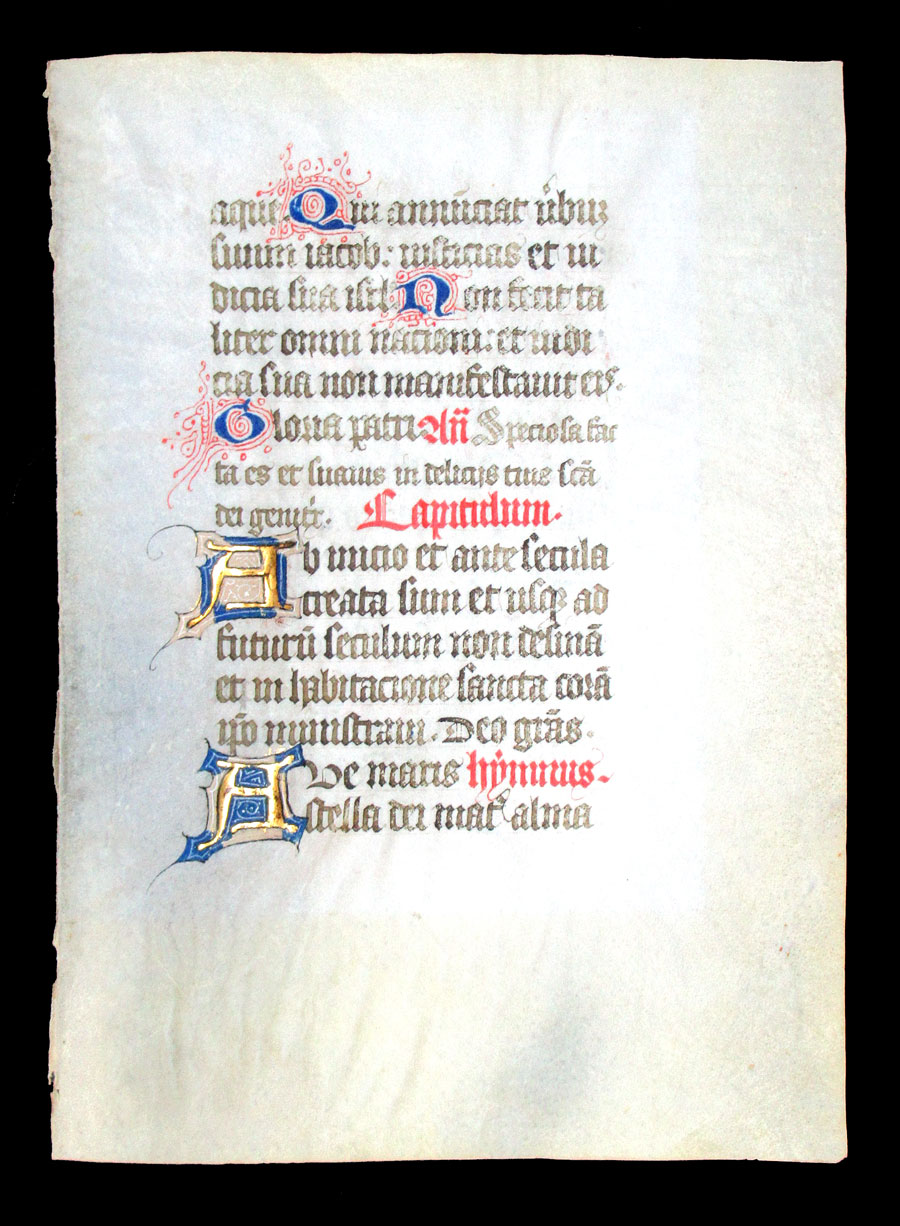 aque. Qui annūciat v̉buꝫ
suum iacob: iusticias et iu
dicia sua isrl̄ Non fecit ta
liter omni nacioni: et iudi
cia sua non manifestauit eis.
Gloria patri Añ Speciosa fac
ta es et suauis in delicijs tuis scā
dei geni⁊̇. Capitulum.
Ab inicio et ante secula
creata sum et usqꝫ ad
futurū seculum non desinā
et in habitacione sancta corā
ip̄o ministraui. Deo grās.
Ave maris hÿmnus.
stella dei mat̉ alma